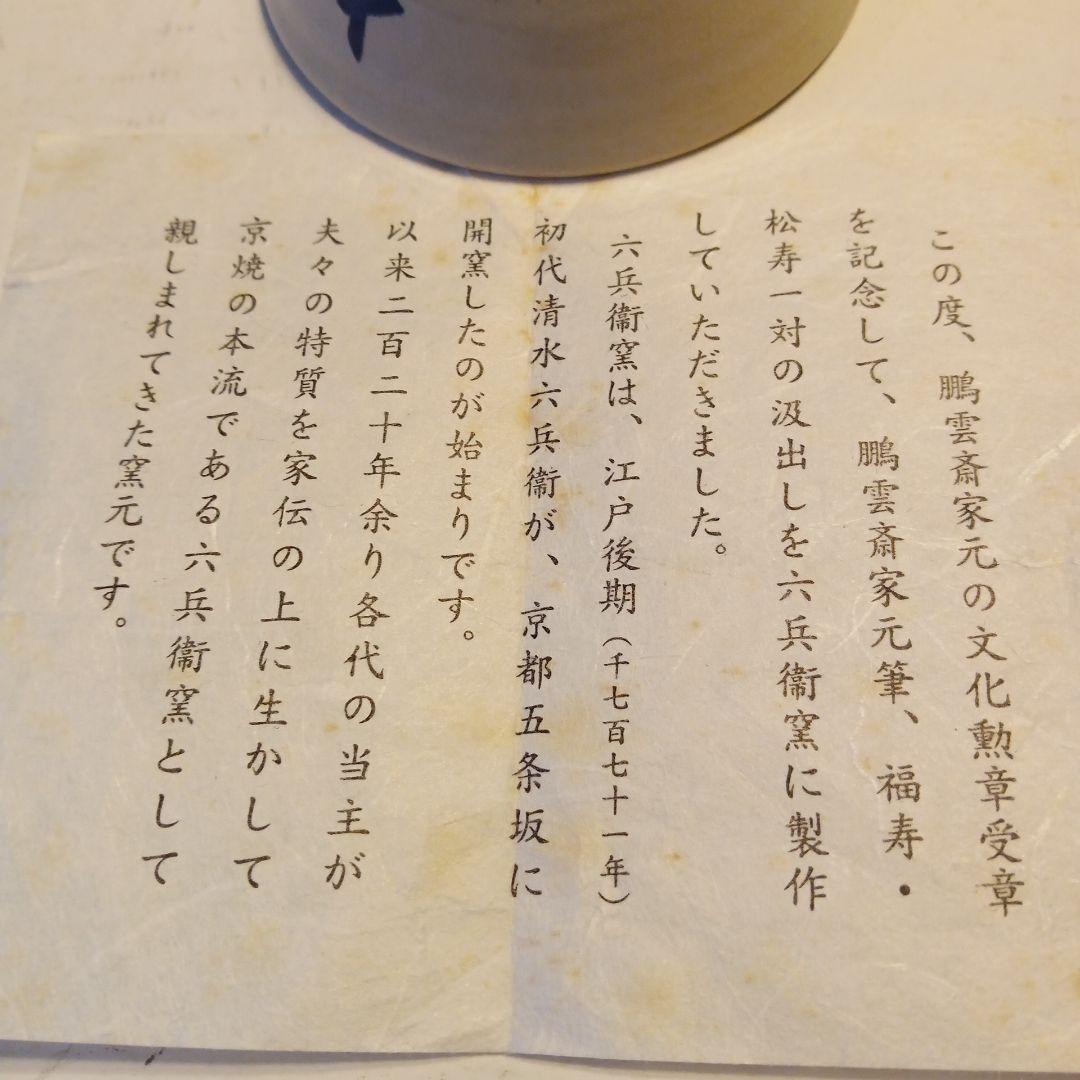 この度、鵬雲斎家元の文化勲章受章
を記念して、鵬雲斎家元筆、福寿・
松寿一対の汲出しを六兵衞窯に製作
していただきました。
六兵衞窯は、江戸後期（千七百七十一年）
初代清水六兵衞が、京都五条坂に
開窯したのが始まりです。
以来二百二十年余り各代の当主が
夫々の特質を家伝の上に生かして
京焼の本流である六兵衞窯として
親しまれてきた窯元です。